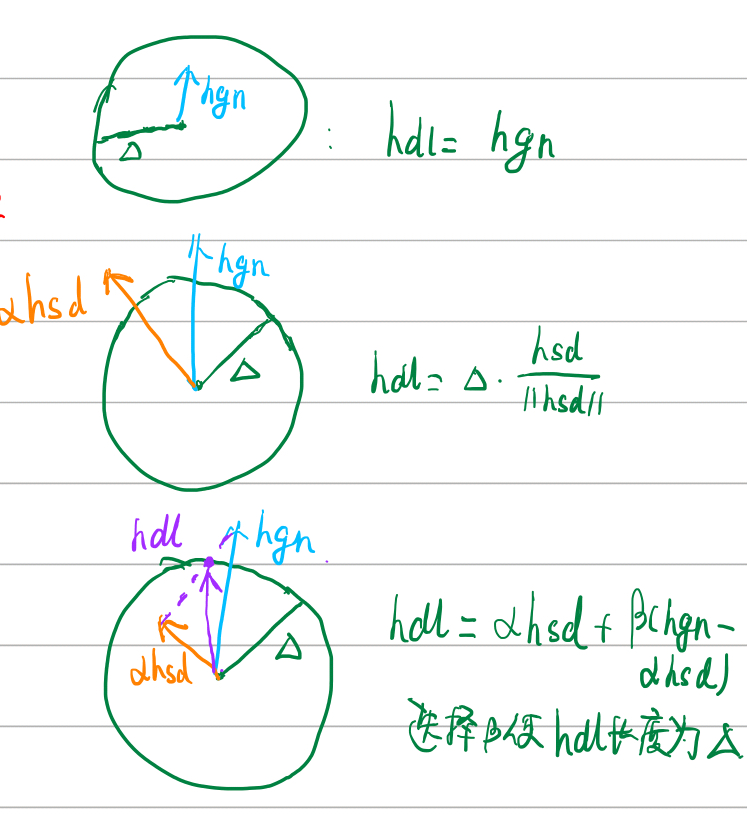 hgn
Δ
: hdl = hgn
αhsd
hgn
Δ
hdl = Δ · hsd / ||hsd||
hdl
hgn
αhsd
Δ
hdl = αhsd + β(hgn -
αhsd)
选择β使hdl长度为Δ